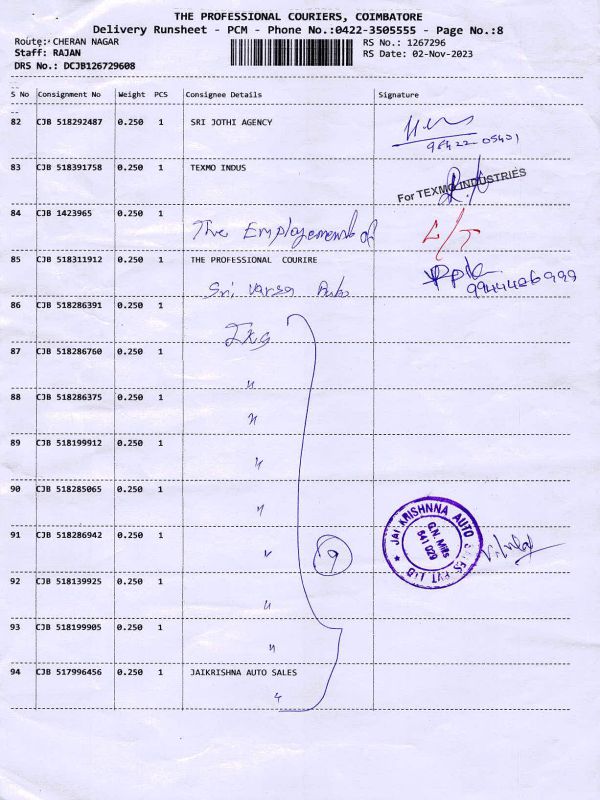 THE PROFESSIONAL COURIERS, COIMBATORE
Delivery Runsheet - PCM - Phone No.:0422-3505555 - Page No.:8
Route: CHERAN NAGAR RS No.: 1267296
Staff: RAJAN RS Date: 02-Nov-2023
DRS No.: DCJB126729608
S No Consignment No Weight PCS Consignee Details Signature
82 CJB 518292487 0.250 1 SRI JOTHI AGENCY
98422-05401
83 CJB 518391758 0.250 1 TEXMO INDUS
For TEXMO INDUSTRIES
84 CJB 1423965 0.250 1
The Employements of
85 CJB 518311912 0.250 1 THE PROFESSIONAL COURIRE
Sri Varsa
9944426999
86 CJB 518286391 0.250 1
87 CJB 518286760 0.250 1
"
88 CJB 518286375 0.250 1
"
89 CJB 518199912 0.250 1
"
90 CJB 518285065 0.250 1
"
91 CJB 518286942 0.250 1
"
9
JAI KRISHNNA AUTO SALES PVT LTD
G.N. Mills
641 029
92 CJB 518139925 0.250 1
"
93 CJB 518199905 0.250 1
"
94 CJB 517996456 0.250 1 JAIKRISHNA AUTO SALES
"